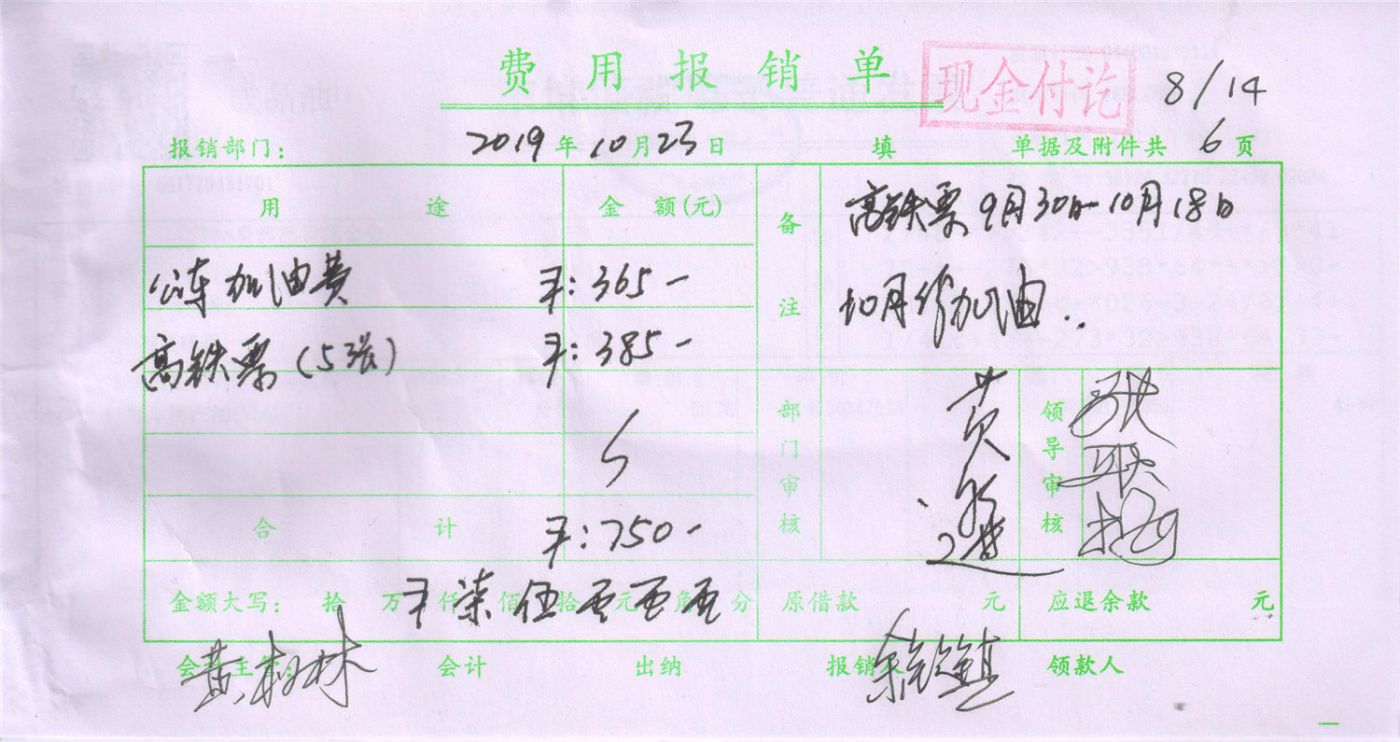 费用报销单
现金付讫
8/14
报销部门: 2019年10月23日 填 单据及附件共 6 页
用途 金额(元) 备注 高铁票9月30日-10月18日
公车加油费 ¥:365- 10月份加油..
高铁票(5张) ¥:385-
部门审核 黄 领导审核
合计 ¥:750-
金额大写: 拾 万 仟 佰 拾 元 角 分 ¥柒伍零零零 原借款 元 应退余款 元
会计主管: 会计 出纳 报销人 领款人